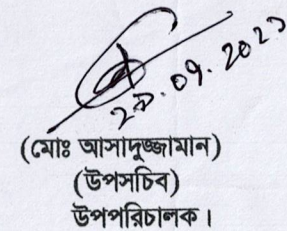 ২৪.০৭.২০২৩
(মোঃ আসাদুজ্জামান)
(উপসচিব)
উপপরিচালক।